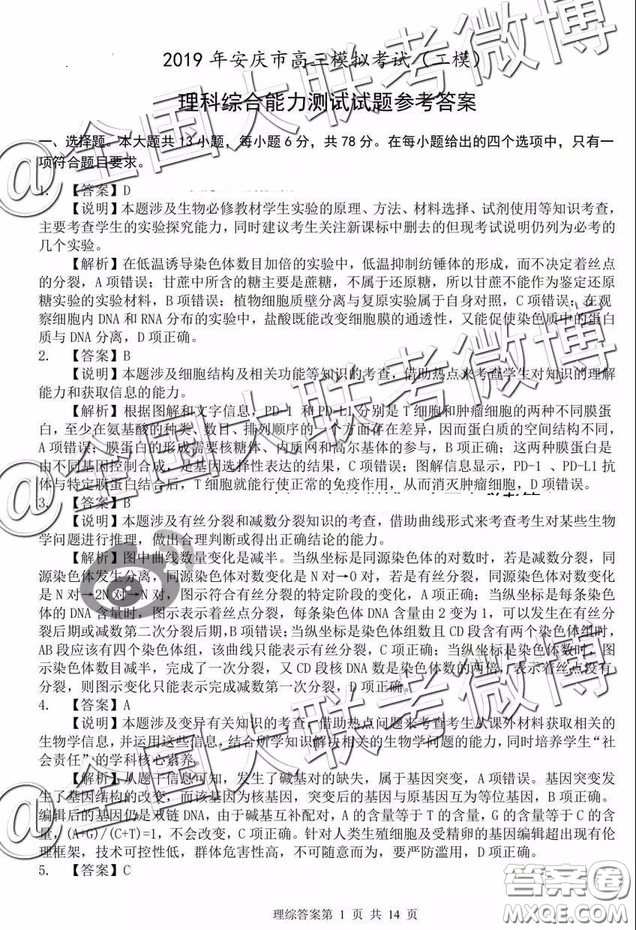 2019 年安庆市高三模拟考试（二模）
理科综合能力测试试题参考答案
一、选择题。本大题共 13 小题，每小题 6 分，共 78 分。在每小题给出的四个选项中，只有一
项符合题目要求。
1. 【答案】D
【说明】本题涉及生物必修教材学生实验的原理、方法、材料选择、试剂使用等知识考查，
主要考查学生的实验探究能力，同时建议考生关注新课标中删去的但现考试说明仍列为必考的
几个实验。
【解析】在低温诱导染色体数目加倍的实验中，低温抑制纺锤体的形成，而不决定着丝点
的分裂，A 项错误；甘蔗中所含的糖主要是蔗糖，不属于还原糖，所以甘蔗不能作为鉴定还原
糖实验的实验材料，B 项错误；植物细胞质壁分离与复原实验属于自身对照，C 项错误；在观
察细胞内 DNA 和 RNA 分布的实验中，盐酸既能改变细胞膜的通透性，又能促使染色质中的蛋白
质与 DNA 分离，D 项正确。
2. 【答案】B
【说明】本题涉及细胞结构及相关功能等知识的考查，借助热点来考查学生对知识的理解
能力和获取信息的能力。
【解析】根据图解和文字信息，PD-1 和 PD-L1 分别是 T 细胞和肿瘤细胞的两种不同膜蛋
白，至少在氨基酸的种类、数目、排列顺序的一个方面存在差异，因而蛋白质的空间结构不同，
A 项错误；膜蛋白的形成需要核糖体、内质网和高尔基体的参与，B 项正确；这两种膜蛋白是
由不同基因控制合成，是基因选择性表达的结果，C 项错误；图解信息显示，PD-1 、PD-L1 抗
体与特定膜蛋白结合后，T 细胞就能行使正常的免疫作用，从而消灭肿瘤细胞，D 项错误。
3. 【答案】B
【说明】本题涉及有丝分裂和减数分裂知识的考查，借助曲线形式来考查考生对某些生物
学问题进行推理，做出合理判断或得出正确结论的能力。
【解析】图中曲线数量变化是减半。当纵坐标是同源染色体的对数时，若是减数分裂，同
源染色体发生分离，同源染色体对数变化是 N 对→0 对，若是有丝分裂，同源染色体对数变化
是 N 对→2N 对→N 对，图示符合有丝分裂的特定阶段的变化，A 项正确；当纵坐标是每条染色
体的 DNA 含量时，图示表示着丝点分裂，每条染色体 DNA 含量由 2 变为 1，可以发生在有丝分
裂后期或减数第二次分裂后期，B 项错误；当纵坐标是染色体组数且 CD 段含有两个染色体组时，
AB 段应该有四个染色体组，该曲线只能表示有丝分裂，C 项正确；当纵坐标是染色体数时，图
示染色体数目减半，完成了一次分裂，又 CD 段核 DNA 数是染色体数的两倍，表示着丝点没有
分裂，则图示变化只能表示完成减数第一次分裂，D 项正确。
4. 【答案】A
【说明】本题涉及变异有关知识的考查，借助热点问题来考查考生从课外材料获取相关的
生物学信息，并运用这些信息，结合所学知识解决相关的生物学问题的能力，同时培养学生“社
会责任”的学科核心素养。
【解析】从题干信息可知，发生了碱基对的缺失，属于基因突变，A 项错误。基因突变发
生了基因结构的改变，而该基因为核基因，突变后的基因与原基因互为等位基因，B 项正确。
编辑后的基因仍是双链 DNA，由于碱基互补配对，A 的含量等于 T 的含量，G 的含量等于 C 的
含量，(A+G)/(C+T)=1，不会改变，C 项正确。针对人类生殖细胞及受精卵的基因编辑超出现有伦
理框架，技术可控性低，群体危害性高，不可随意而为，要严防滥用，D 项正确。
5. 【答案】C
理综答案第 1 页 共 14 页
@全国大联考微博
@全国大联考微博
@全国大联考微博
答案圈
MXQE.COM